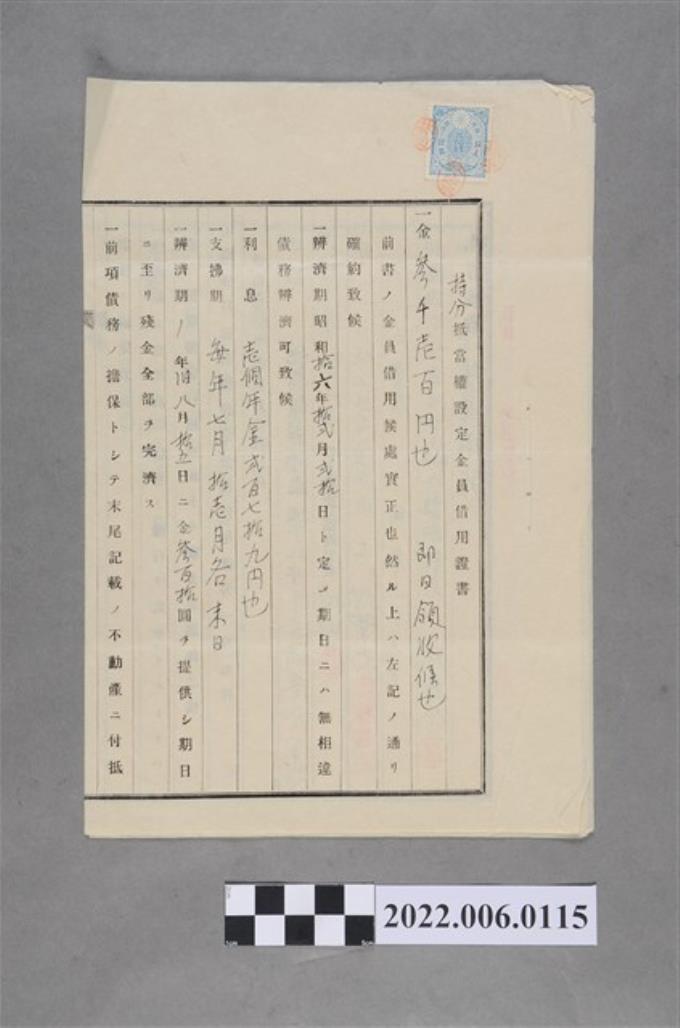 持分抵當權設定金員借用證書
一金參千壱百円也 即日領收候也
前書ノ金員借用候處實正也然ル上ハ左記ノ通リ
確約致候
一辨濟期昭和拾六年拾弐月弐拾日ト定メ期日ニハ無相違
債務辨濟可致候
一利息 壱個年金弐百七拾九円也
一支拂期 毎年七月拾壱月各末日
一辨濟期ノ年 八月拾五日ニ金參百拾圓ヲ提供シ期日
ニ至リ殘金全部ヲ完濟ス
一前項債務ノ擔保トシテ末尾記載ノ不動產ニ付抵
2022.006.0115